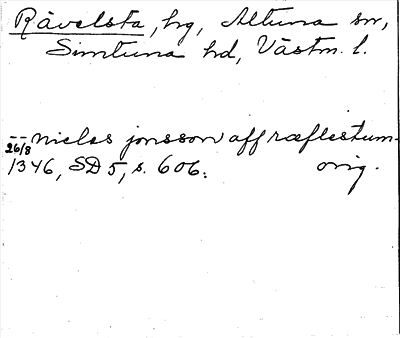 Rävelsta, hg, Altuna sn,
Simtuna hd, Västm. l.
-- niclas jonsson aff ræflestum-
26/8
1346, SD 5, s. 606. orig.